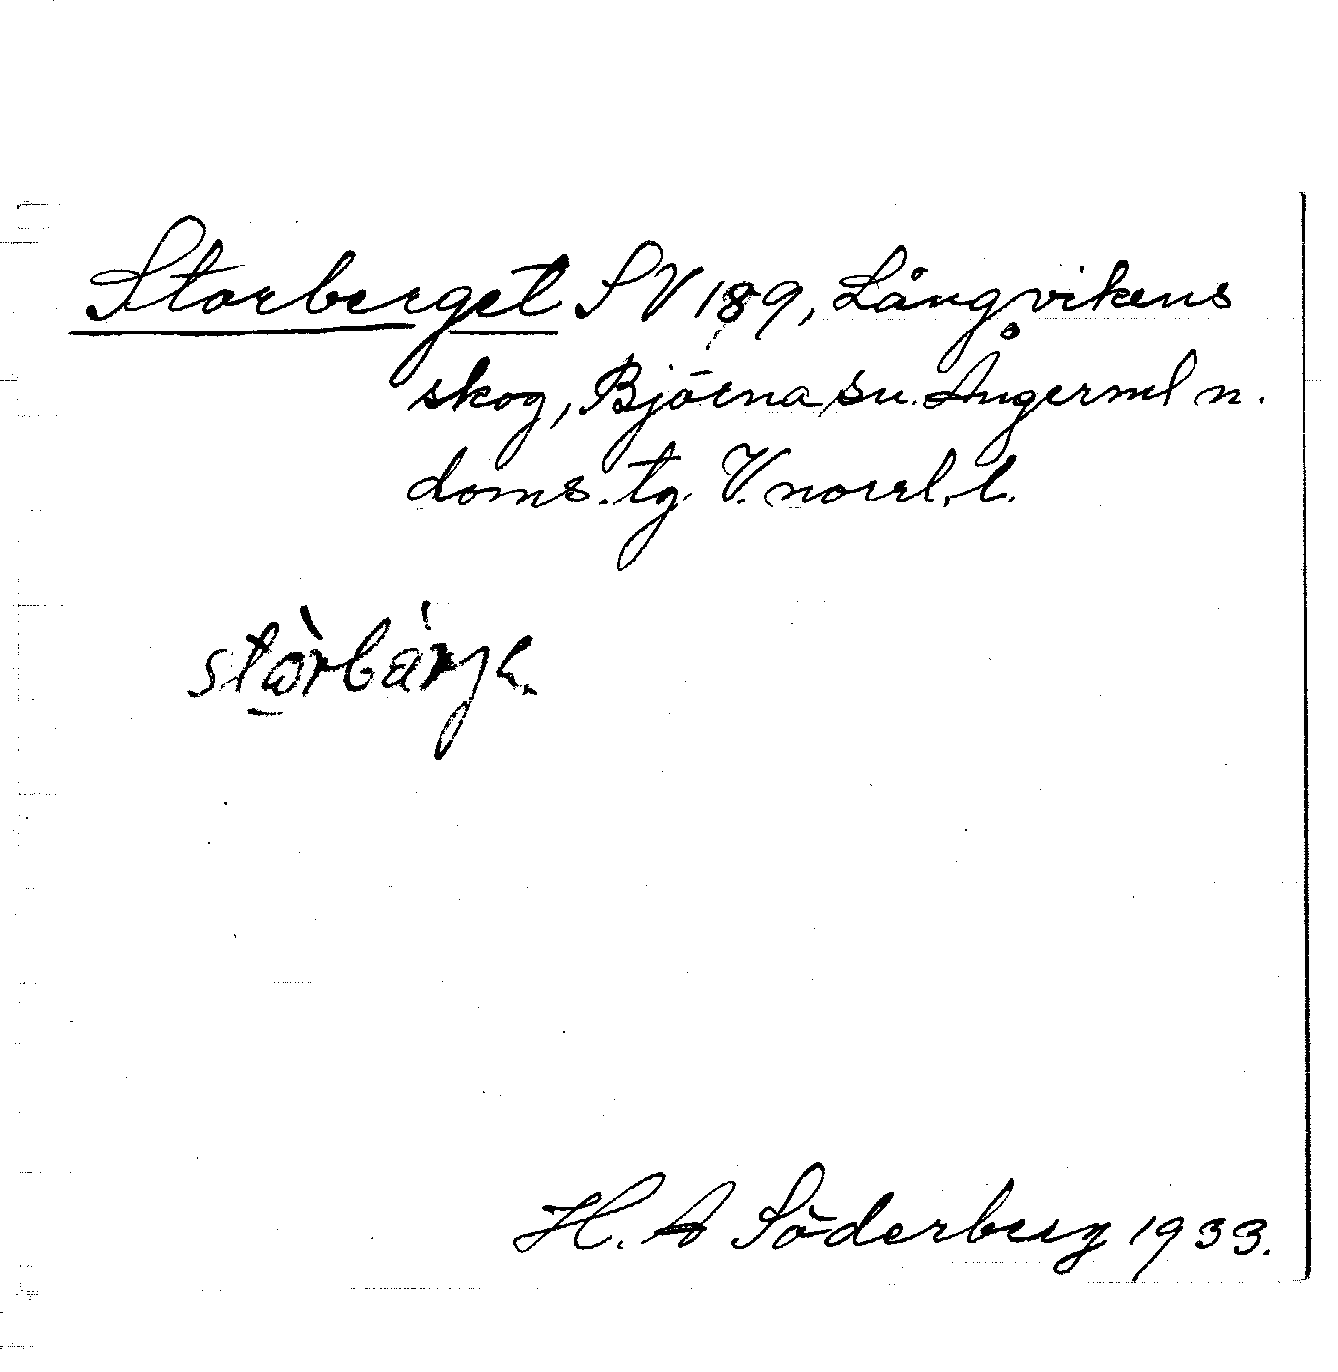 Storberget SV 189, Långvikens
skog, Björna sn. Ångerml n.
doms. tg. V. norrl. l.
H. A Söderberg 1933.